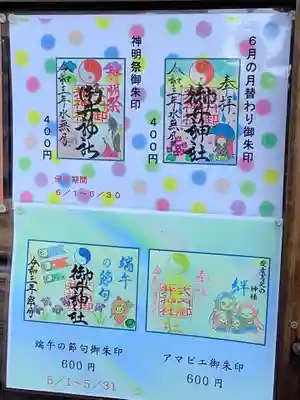 6月の月替わり御朱印
奉拝
御井神社
令和三年水無月
400円
神明祭御朱印
御井神社
令和三年水無月
400円
頒布期間
6/1〜6/30
端午の節句
御井神社
令和三年皐月
端午の節句御朱印
600円
5/1〜5/31
安産祈願の神様
絆
アマビエ御朱印
600円